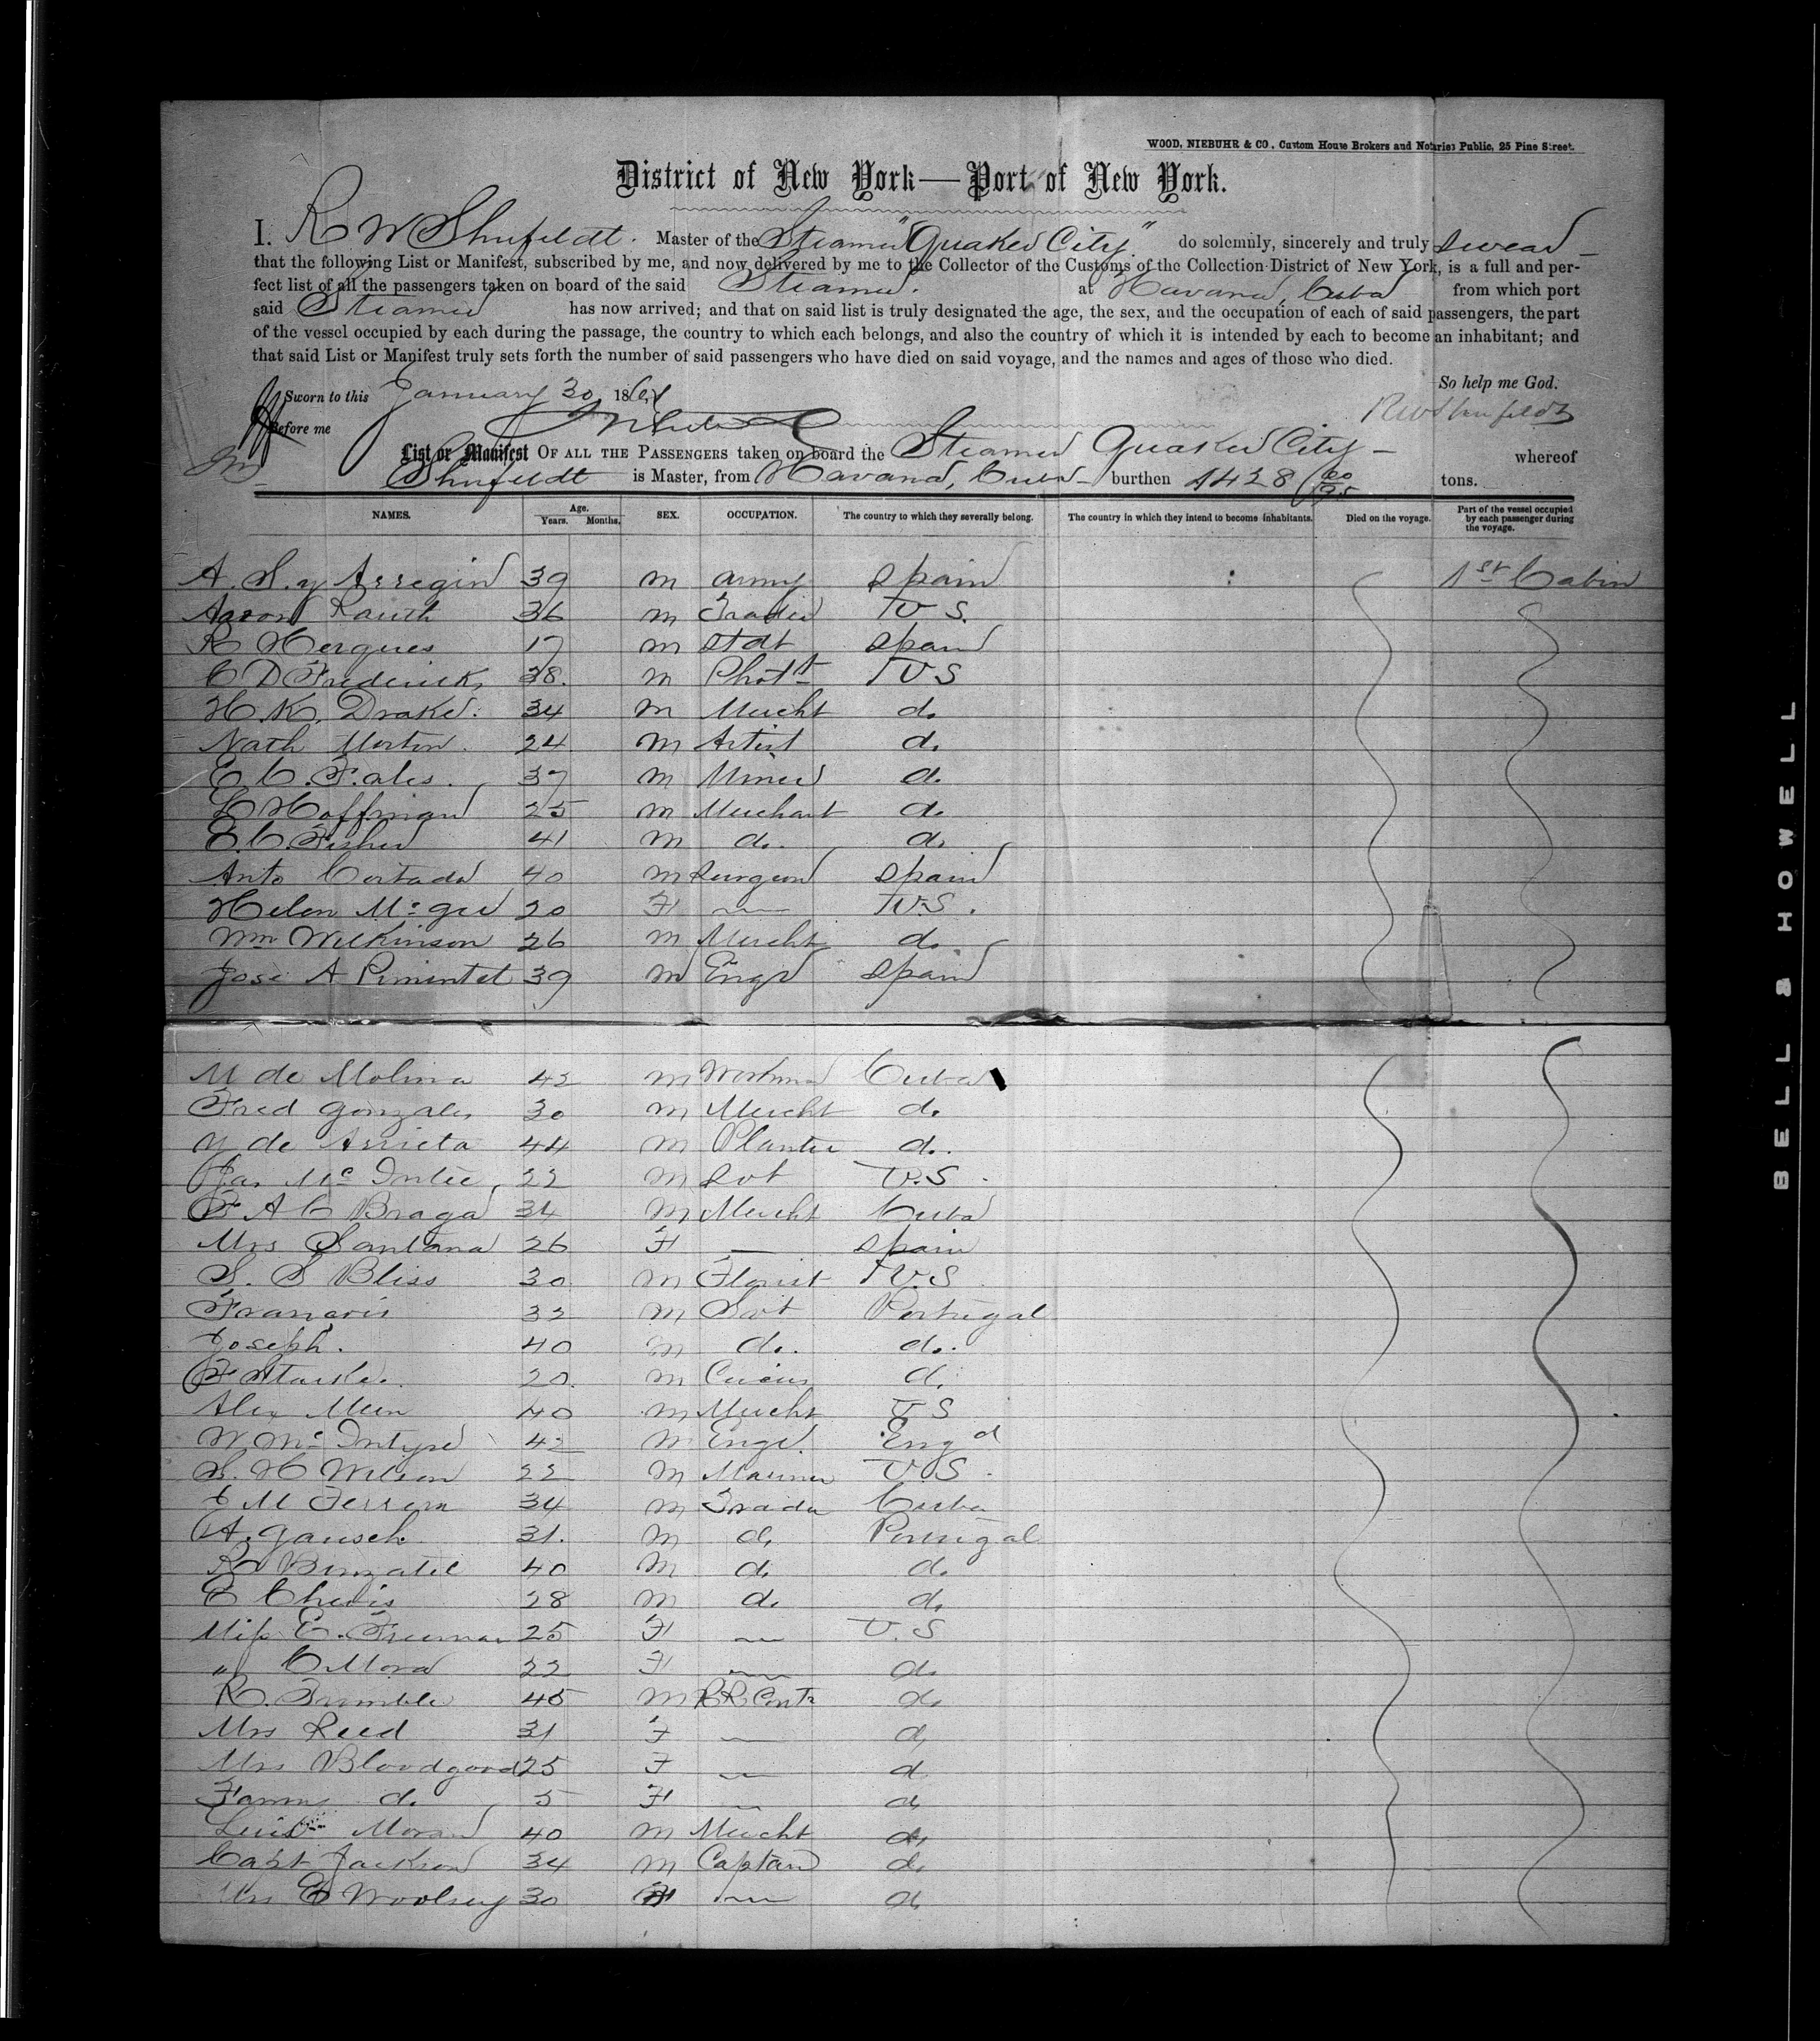 WOOD, NIEBUHR & CO., Custom House Brokers and Notaries Public, 25 Pine Street.
District of New York—Port of New York.
I, R W Shufeldt. Master of the Steamer "Quaker City" do solemnly, sincerely and truly swear
that the following List or Manifest, subscribed by me, and now delivered by me to the Collector of the Customs of the Collection District of New York, is a full and per-
fect list of all the passengers taken on board of the said Steamer. at Havana, Cuba from which port
said Steamer has now arrived; and that on said list is truly designated the age, the sex, and the occupation of each of said passengers, the part
of the vessel occupied by each during the passage, the country to which each belongs, and also the country of which it is intended by each to become an inhabitant; and
that said List or Manifest truly sets forth the number of said passengers who have died on said voyage, and the names and ages of those who died.
So help me God.
Sworn to this January 30 1861
RW Shufeldt
Before me
List or Manifest OF ALL THE PASSENGERS taken on board the Steamer Quaker City - whereof
Shufeldt is Master, from Havana, Cuba - burthen 1428 tons.
NAMES. Age. Years. Months. SEX. OCCUPATION. The country to which they severally belong. The country in which they intend to become inhabitants. Died on the voyage. Part of the vessel occupied by each passenger during the voyage.
A. S. y Arregin 39 m army Spain 1st Cabin
Aaron Rauth 36 m Trader U S.
R Hergues 17 m Stdt Spain
C D Fredericks 38. m Phott U S
H. K. Drake. 34 m Mercht do
Nath Morton. 24 m Artist do
E. C. Fales. 37 m Miner do
L Hoffman 25 m Merchant do
E. C. Fisher 41 m do. do
Anto Cortada 40 m Surgeon Spain
Helen McGee 20 F — U.S.
Wm Wilkinson 26 m Mercht do
Jose A Pimentel 39 m Engr Spain
M de Molina 42 m Workman Cuba
Fred Gonzales 30 m Mercht do
Y de Arrieta 44 m Planter do.
Jas McIntee 22 m Svt U.S.
F A C Braga 34 m Mercht Cuba
Mrs Santana 26 F — Spain
S. S Bliss 30 m Florist U.S
Francois 32 m Svt Portugal
Joseph. 40 m do. do.
F Starke. 20. m Circus do
Alex Muir 40 m Mercht U S
W McIntyre 42 m Engr. Engd
S. H Wilson 22 m Mariner U.S.
E M Ferrera 34 m Trader Cuba
A. Gausch 31. m do Portugal
R 40 m do do
C Chevis 28 m do do
Miss E. Freeman 25 F — U.S
" C Mora 22 F — do
R. Trumble 45 m RR Contr do
Mrs Reed 31 F — do
Mrs Bloodgood 25 F — do
Fanny do 5 F — do
Luis Moran 40 m Mercht do
Capt Jackson 34 m Captain do
Mrs E Woolsey 30 F — do
BELL & HOWELL